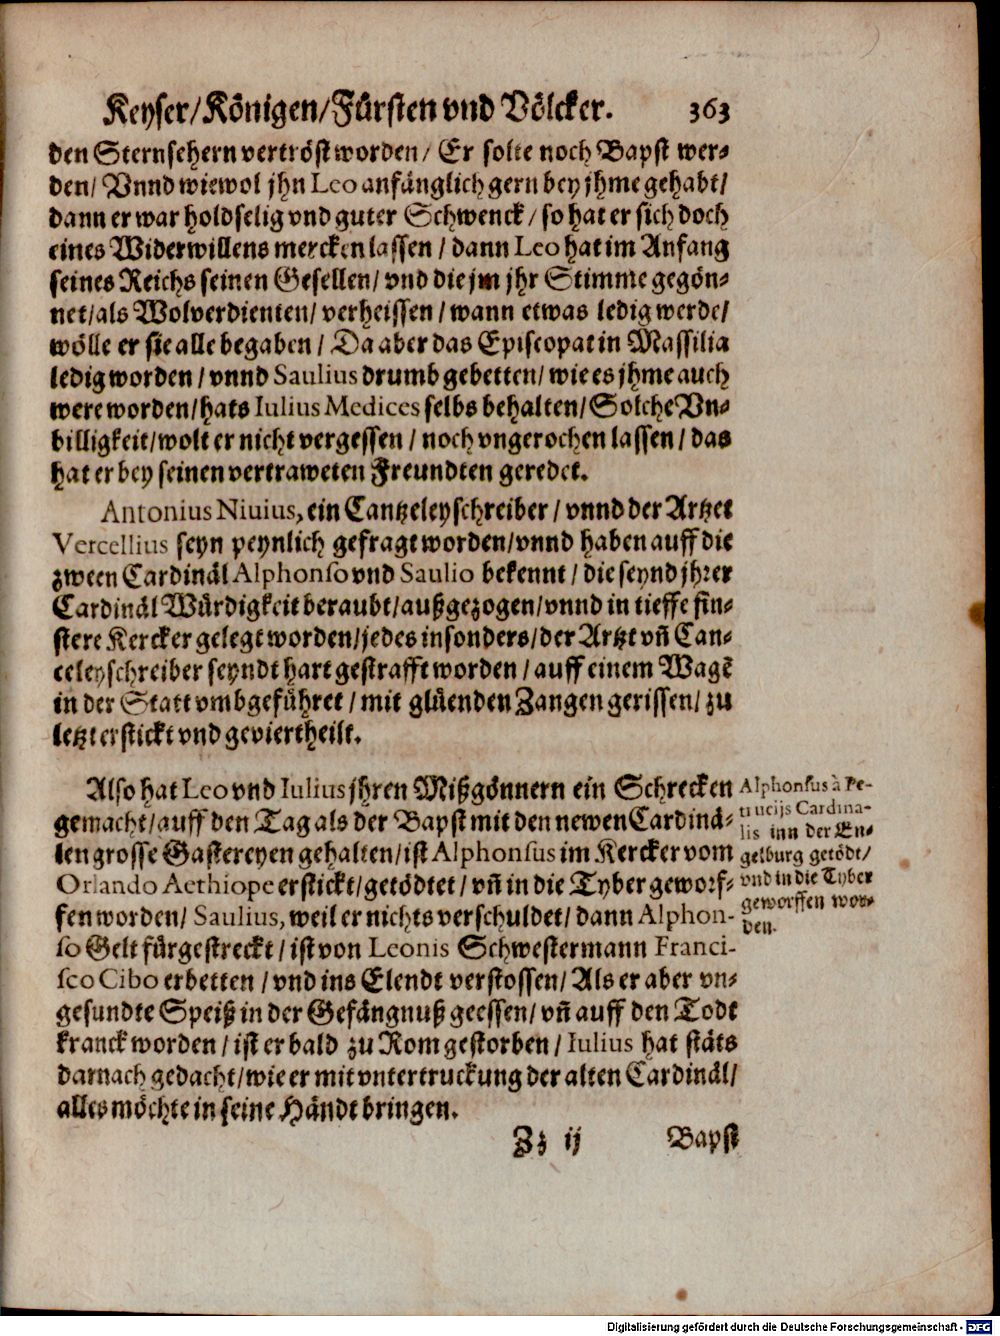 Keyser/Königen/Fürsten vnd Völcker. 363
den Sternsehern vertröst worden/ Er solte noch Bapst wer-
den/ Vnnd wiewol jhn Leo anfänglich gern bey jhme gehabt/
dann er war holdselig vnd guter Schwenck/ so hat er sich doch
eines Widerwillens mercken lassen / dann Leo hat im Anfang
seines Reichs seinen Gesellen/ vnd die jm jhr Stimme gegön-
net/als Wolverdienten/ verheissen / wann etwas ledig werde/
wölle er sie alle begaben / Da aber das Episcopat in Massilia
ledig worden / vnnd Saulius drumb gebetten/ wie es jhme auch
were worden/hats Iulius Medices selbs behalten/ Solche Vn-
billigkeit/wolt er nicht vergessen / noch vngerochen lassen / das
hat er bey seinen vertraweten Freundten geredet.
Antonius Niuius, ein Cantzeleyschreiber / vnnd der Artzet
Vercellius seyn peynlich gefragt worden/vnnd haben auff die
zween Cardinäl Alphonso vnd Saulio bekennt / die seynd jhrer
Cardinäl Würdigkeit beraubt/außgezogen/vnnd in tieffe fin-
stere Kercker gelegt worden/jedes insonders/der Artzt vñ Can-
celeyschreiber seyndt hart gestrafft worden / auff einem Wagē
in der Statt vmbgeführet / mit glüenden Zangen gerissen/ zu
letzt erstickt vnd geviertheilt.
Also hat Leo vnd Iulius jhren Mißgönnern ein Schrecken
gemacht/auff den Tag als der Bapst mit den newen Cardinä-
len grosse Gastereyen gehalten/ist Alphonsus im Kercker vom
Orlando Aethiope erstickt/getödtet/ vñ in die Tyber geworf-
fen worden/ Saulius, weil er nichts verschuldet/ dann Alphon-
so Gelt fürgestreckt / ist von Leonis Schwestermann Franci-
sco Cibo erbetten / vnd ins Elendt verstossen/ Als er aber vn-
gesundte Speiß in der Gefängnuß geessen/ vñ auff den Todt
kranck worden / ist er bald zu Rom gestorben / Iulius hat stäts
darnach gedacht/wie er mit vntertruckung der alten Cardinäl/
alles möchte in seine Händt bringen.
Alphonsus à Pe-
trucijs Cardina-
lis inn der En-
gelburg getödt/
vnd in die Tyber
geworffen wor-
den.
Zz ij Bapst
Digitalisierung gefördert durch die Deutsche Forschungsgemeinschaft - DFG